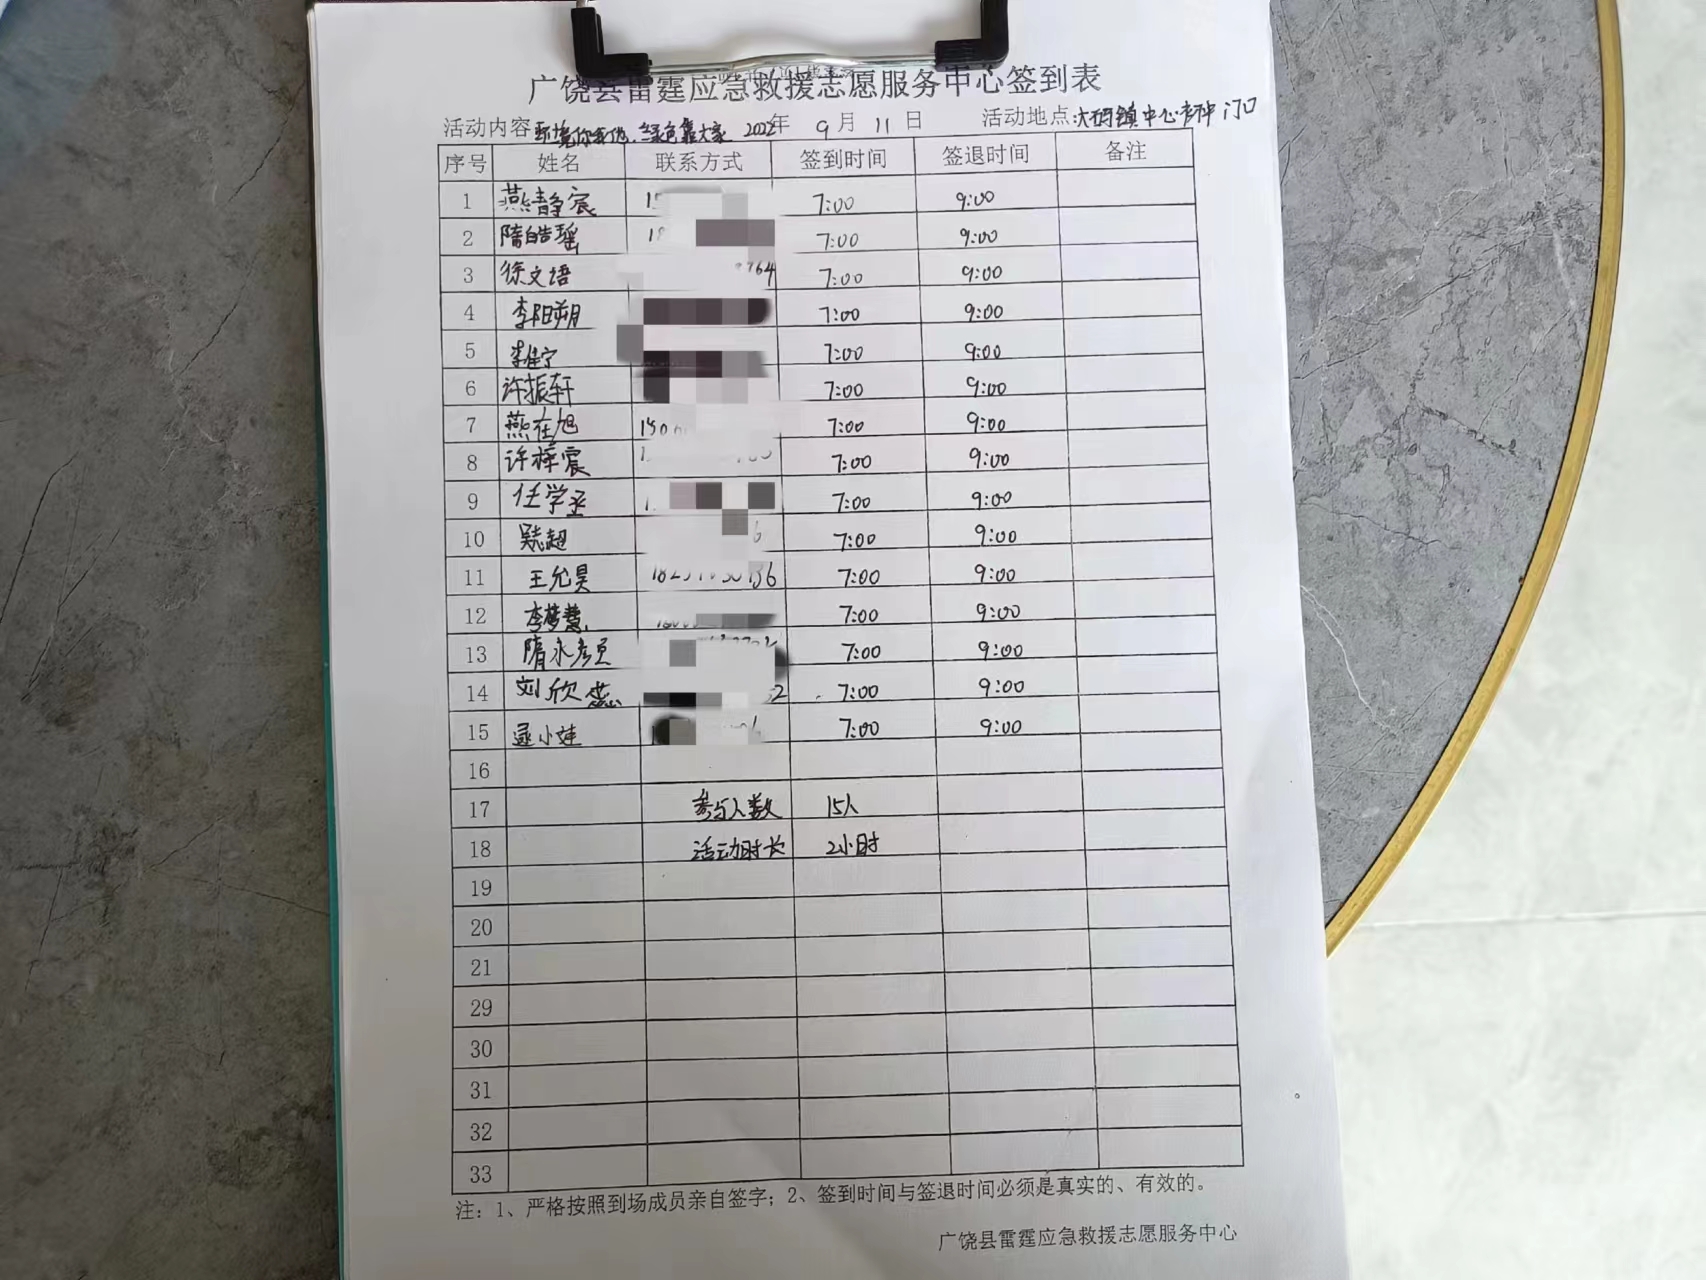 广饶县雷霆应急救援志愿服务中心签到表
活动内容 绿色靠大家 2022年 9月 11日 活动地点:大码镇中心 门口
序号 姓名 联系方式 签到时间 签退时间 备注
1 燕静宸 7:00 9:00
2 隋皓瑶 18 7:00 9:00
3 徐文语 764 7:00 9:00
4 李阳朔 7:00 9:00
5 李佳宁 7:00 9:00
6 许振轩 7:00 9:00
7 燕在旭 7:00 9:00
8 许梓宸 7:00 9:00
9 任学丞 7:00 9:00
10 7:00 9:00
11 王允昊 7:00 9:00
12 李梦慧 7:00 9:00
13 隋永 7:00 9:00
14 刘欣蕊 7:00 9:00
15 小娃 7:00 9:00
16
17 参与人数 15人
18 活动时长 2小时
19
20
21
29
30
31
32
33
注:1、严格按照到场成员亲自签字;2、签到时间与签退时间必须是真实的、有效的。
广饶县雷霆应急救援志愿服务中心